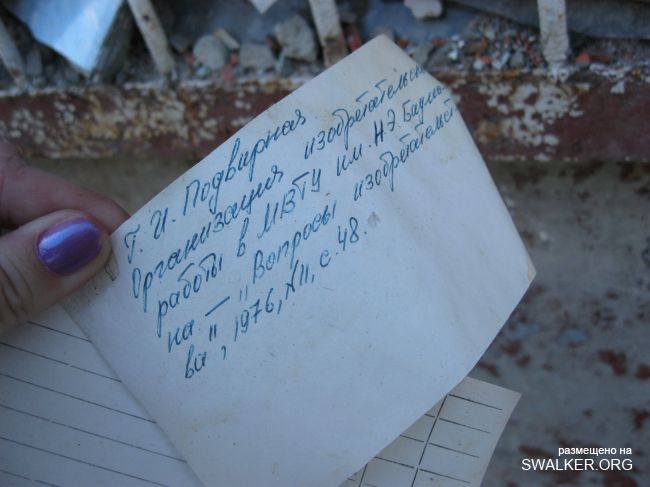 Г. И. Подвирная
Организация изобретательск
работы в МВТУ им. Н.Э. Баума-
на — "Вопросы изобретательст
ва", 1976, N11, с. 48.
размещено на
SWALKER.ORG